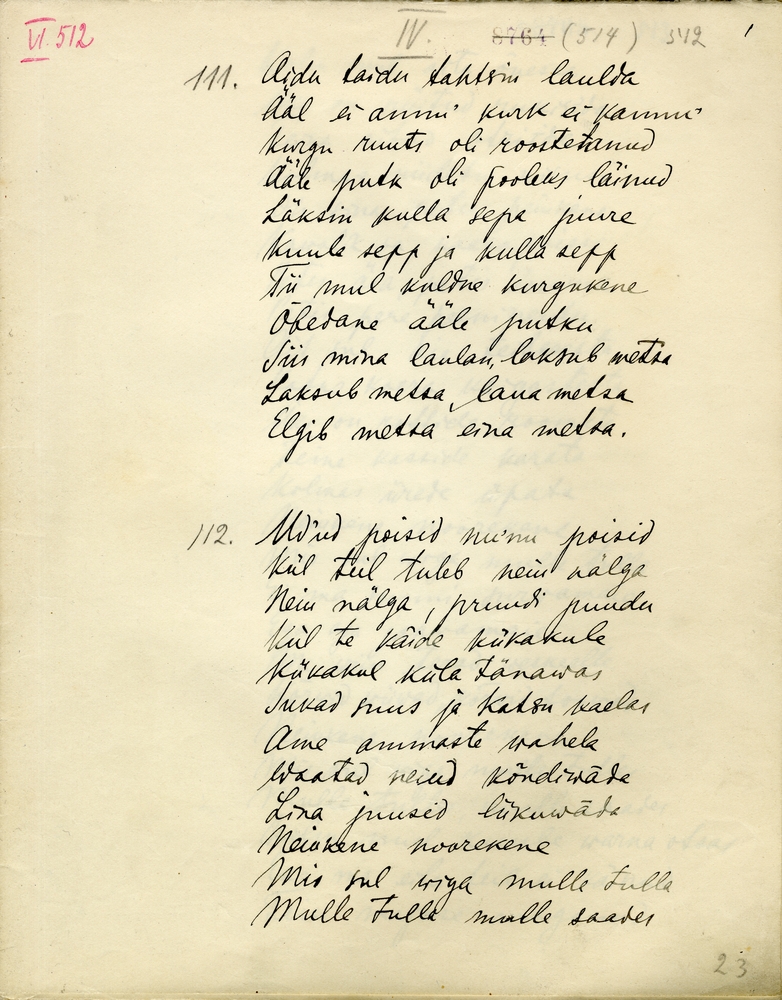 VI. 512 IV. 8764 (514) 512 1
111. Aidu taidu tahtsin laulda
Ääl ei anna kurk ei kanna
Kurgu ruuts oli roostetanud
Ääle putk oli pooleks läinud
Läksin kulla sepa juure
Kuula sepp ja kulla sepp
Tii mul kuldne kurgukene
Õbedane ääle putku
Siis mina laulan, laksub metsa
Laksub metsa, laua metsa
Elgib metsa eina metsa.
112. poisid poisid
Kül teil tuleb neiu nälga
Neiu nälga, pruudi puudu
Kül te käide kükakule
Kükakul küla tänawas
Sukad suus ja katsu kaelas
Ame ammaste wahela
Waatad neiud kõndiwäda
Lina juused liikuwäda
Neiukene noorekene
Mis sul wiga mulle tulla
Mulle tulla mulle saades
23